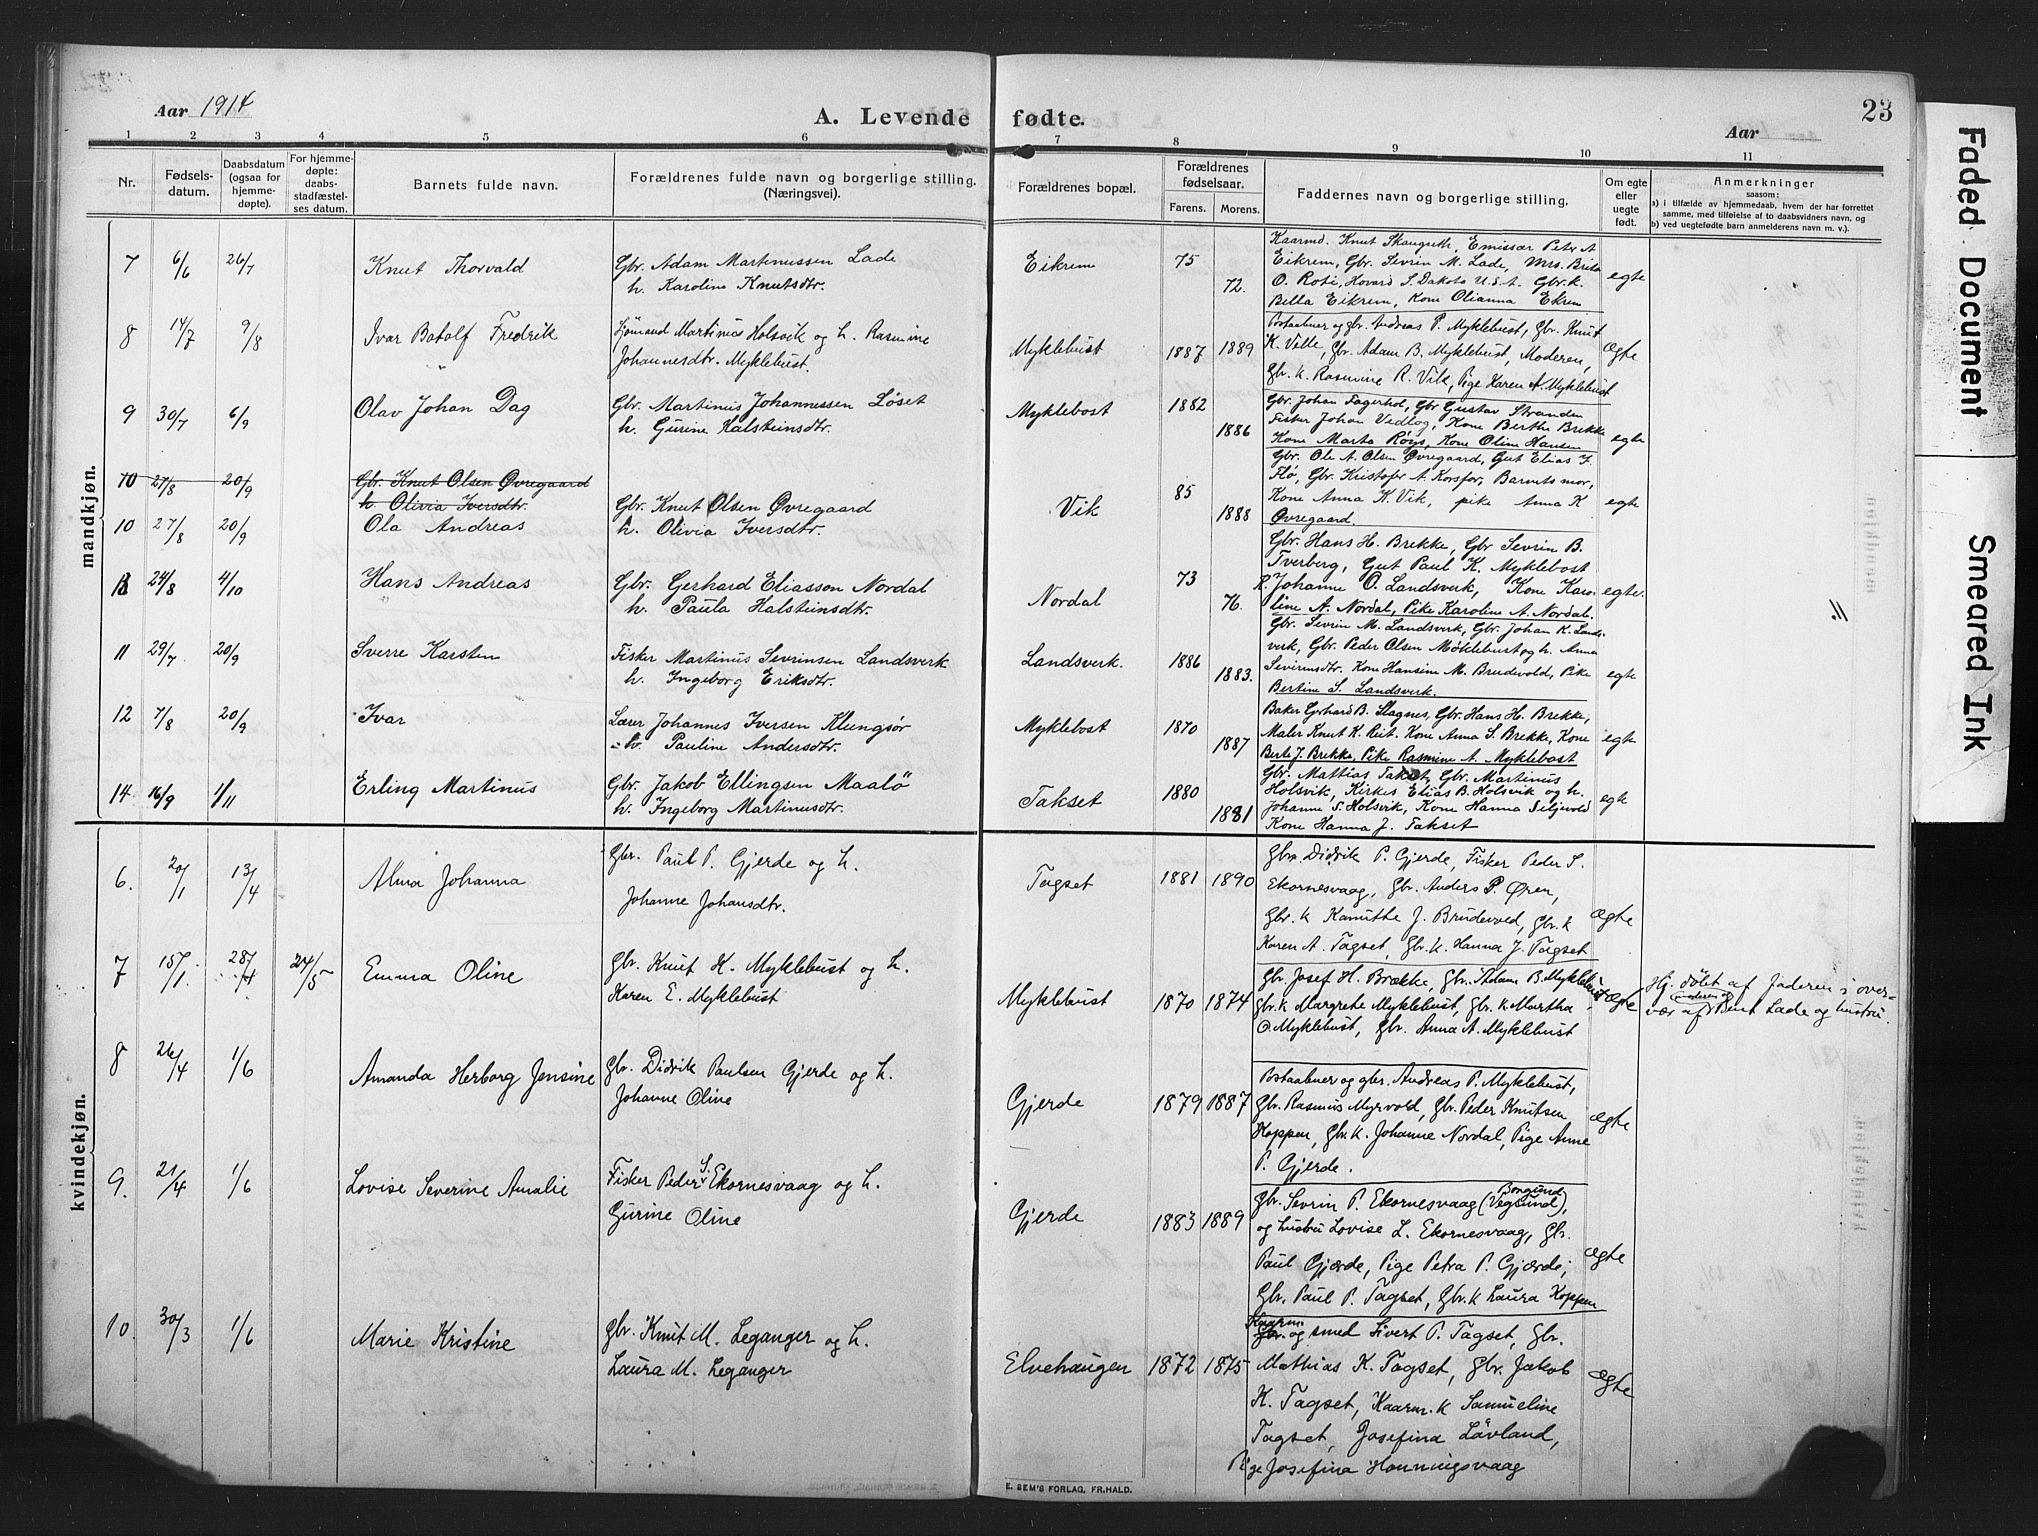 Aar 1914
A. Levende fødte.
Aar
23
1 2 3 4 5 6 7 8 9 10 11
Nr.
Fødsels-
datum.
Daabsdatum
(ogsaa for
hjemme-
døpte).
For hjemme-
døpte:
daabs-
stadfæstel-
ses datum.
Barnets fulde navn.
Forældrenes fulde navn og borgerlige stilling.
(Næringsvei).
Forældrenes bopæl.
Forældrenes
fødselsaar.
Farens. Morens.
Faddernes navn og borgerlige stilling.
Om egte
eller
uegte
født.
Anmerkninger
saasom:
a) i tilfælde av hjemmedaab, hvem der har forrettet
samme, med tilføielse af to daabsvidners navn, og
b) ved uegtefødte barn anmelderens navn m. v.).
mandkjøn.
7 6/6 26/7 Knut Thorvald
Gbr. Adam Martinussen Lade
h. Karoline Knutsdtr.
Eikrem 75 72.
Kaarmd. Knut Skaugseth, Emissær Peter A
Eikrem, Gbr. Sevrin M. Lade, Mrs. Brita
O. Roti, Hovard S. Dakota U.S.A. Gbr.k.
Bella Eikrem, Kone Olianna Ekrem
egte
8 14/7 9/8 Ivar Botolf Fredrik
Sjømand Martinus Holsvik og h. Rasmine
Johannesdtr. Myklebust.
Myklebust 1887 1889
Postaabner og gbr. Andreas P. Myklebust, Gbr. Knut
K. Velle, Gbr. Adam B. Myklebust, Moderen,
Gbr. k. Rasmine R. Vik, Pige Karen A. Myklebust
Ægte
9 30/7 6/9 Olav Johan Dag
Gbr. Martinus Johannessen Løset
h. Gurine Halsteinsdtr.
Myklebost 1882 1886
Gbr. Johan Fagerhol, Gbr Gustav Stranden
Fisker Johan Vedlog, Kone Berthe Brekke
Kone Marta Røys, Kone Oline Hansen
egte
10 27/8 20/9 Gbr. Knut Olsen Øvregaard
h. Olivia Iversdtr.
10 27/8 20/9 Ola Andreas
Gbr. Knut Olsen Øvregaard
h. Olivia Iversdtr.
Vik 85 1888
Gbr. Ole A. Olsen Øvregaard, Gut Elias I.
Flø, Gbr. Kristofer A. Korsfor, Barnets mor,
Kone Anna K. Vik, pike Anna K
Øvregaard.
egte
13 24/8 4/10 Hans Andreas
Gbr. Gerhard Eliasson Nordal
h. Paula Halsteinsdtr.
Nordal 73 76.
Gbr. Hans H. Brekke, Gbr Sevrin B.
Tverberg, Gut Paul K. Myklebost
P. Johanne O. Landsverk, Kone Karo-
line A. Nordal, Pike Karoline A. Nordal.
egte.
11 29/7 20/9 Sverre Karsten
Fisker Martinus Sevrinsen Landsverk
h. Ingeborg Eriksdtr.
Landsverk. 1886 1883.
Gbr. Sevrin M. Landsverk, Gbr. Johan K. Lands-
verk, Gbr. Peder Olsen Møklebust og h. Anna
Severinsdtr. Kone Hansine M. Brudevold, Pike
Bertine S. Landsverk.
egte
12 7/8 20/9 Ivar
Lærer Johannes Iversen Klungsør
h. Pauline Andersdtr.
Myklebost 1870 1887
Baker Gerhard B. Slagnes, Gbr. Hans H. Brekke,
Maler Knut K. Reit. Kone Anna S. Brekke, Kone
Berte J. Brekke, Pike Rasmine A. Myklebost
egte
14 16/9 1/11 Erling Martinus
Gbr. Jakob Ellingsen Maalø
h. Ingeborg Martinusdtr.
Takset 1880 1881
Gbr. Mattias Takset, Gbr. Martinus
Holsvik, Kirkes Elias B. Holsvik og h.
Johanne S. Holsvik, Kone Hanna Seljevold
Kone Hanna J. Takset
egte
kvindekjøn.
6. 20/1 13/4 Alma Johanna
Gbr. Paul P. Gjerde og h.
Johanne Johansdtr.
Tagset 1881 1890
Gbr. Didrik P. Gjerde, Fisker Peder S.
Ekornesvaag, Gbr. Anders P. Øren,
Gbr. k Kanutte J. Brudevod, Gbr. k
Karen A. Tagset, Gbr. k. Hanna J. Tagset
Ægte
7 15/1 28/4 24/5 Emma Oline
Gbr. Knut H. Myklebust og h.
Karen E. Myklebust
Myklebust 1870 1874
Gbr. Josef H. Brække, Gbr. Adam B. Myklebust,
Gbr. k Margrete Myklebust, Gbr. k. Martha
O. Myklebust, Gbr. Anna A. Myklebust
Ægte
Hj. døbt af Faderen i over-
vær af Bent Lade og hustru.
8 26/4 1/6 Amanda Herborg Jensine
Gbr. Didrik Paulsen Gjerde og h.
Johanne Oline
Gjerde 1879 1887
Postaabner og gbr. Andreas P. Myklebust,
Gbr. Rasmus Myrvold, Gbr. Peder Knutsen
Koppen, Gbr. k. Johanne Nordal, Pige Anne
P. Gjerde.
Ægte
9. 21/4 1/6 Lovise Severine Amalie
Fisker Peder S. Ekornesvaag og h.
Gurine Oline
Gjerde 1883 1889
Borgund
Gbr. Sevrin P. Ekornesvaag (Vegsund),
og hustru Lovise L. Ekornesvaag, Gbr.
Paul Gjærde, Pige Petra P. Gjærde;
Gbr. Paul P. Tagset, Gbr. k Laura Koppen
Ægte
10. 30/3 1/6 Marie Kristine
Gbr. Knut M. Leganger og h.
Laura M. Leganger
Elvehaugen 1872 1875
Kaarm.
Gbr. og smed Sivert P. Tagset, Gbr.
Mathias K. Tagset, Gbr. Jakob
K. Tagset, Kaarm. k Samueline
Tagset, Josefina Løvland,
Pige Josefina Honningsvaag
Ægte
E. SEM'S FORLAG, FR.HALD.
Faded Document
Smeared Ink